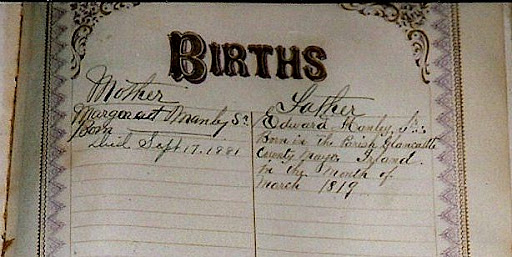 BIRTHS
Mother
Margaret Manly Sr
Born
Died Sept 17. 1881
Father
Edward Manly, Sr.
Born in the Parish Glancastle
County Island
in the Month of
March 1819